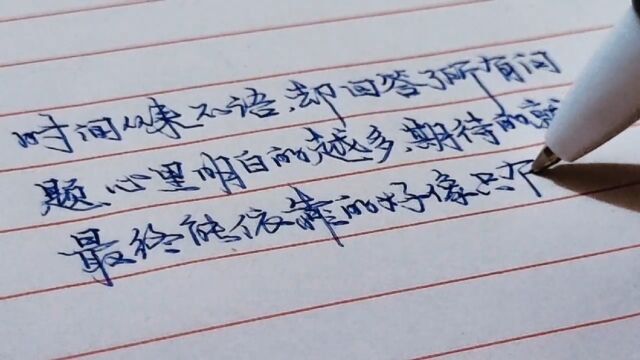 时间从来不语,却回答了所有问
题,心里明白的越多,期待的就
最终能依靠的好像只